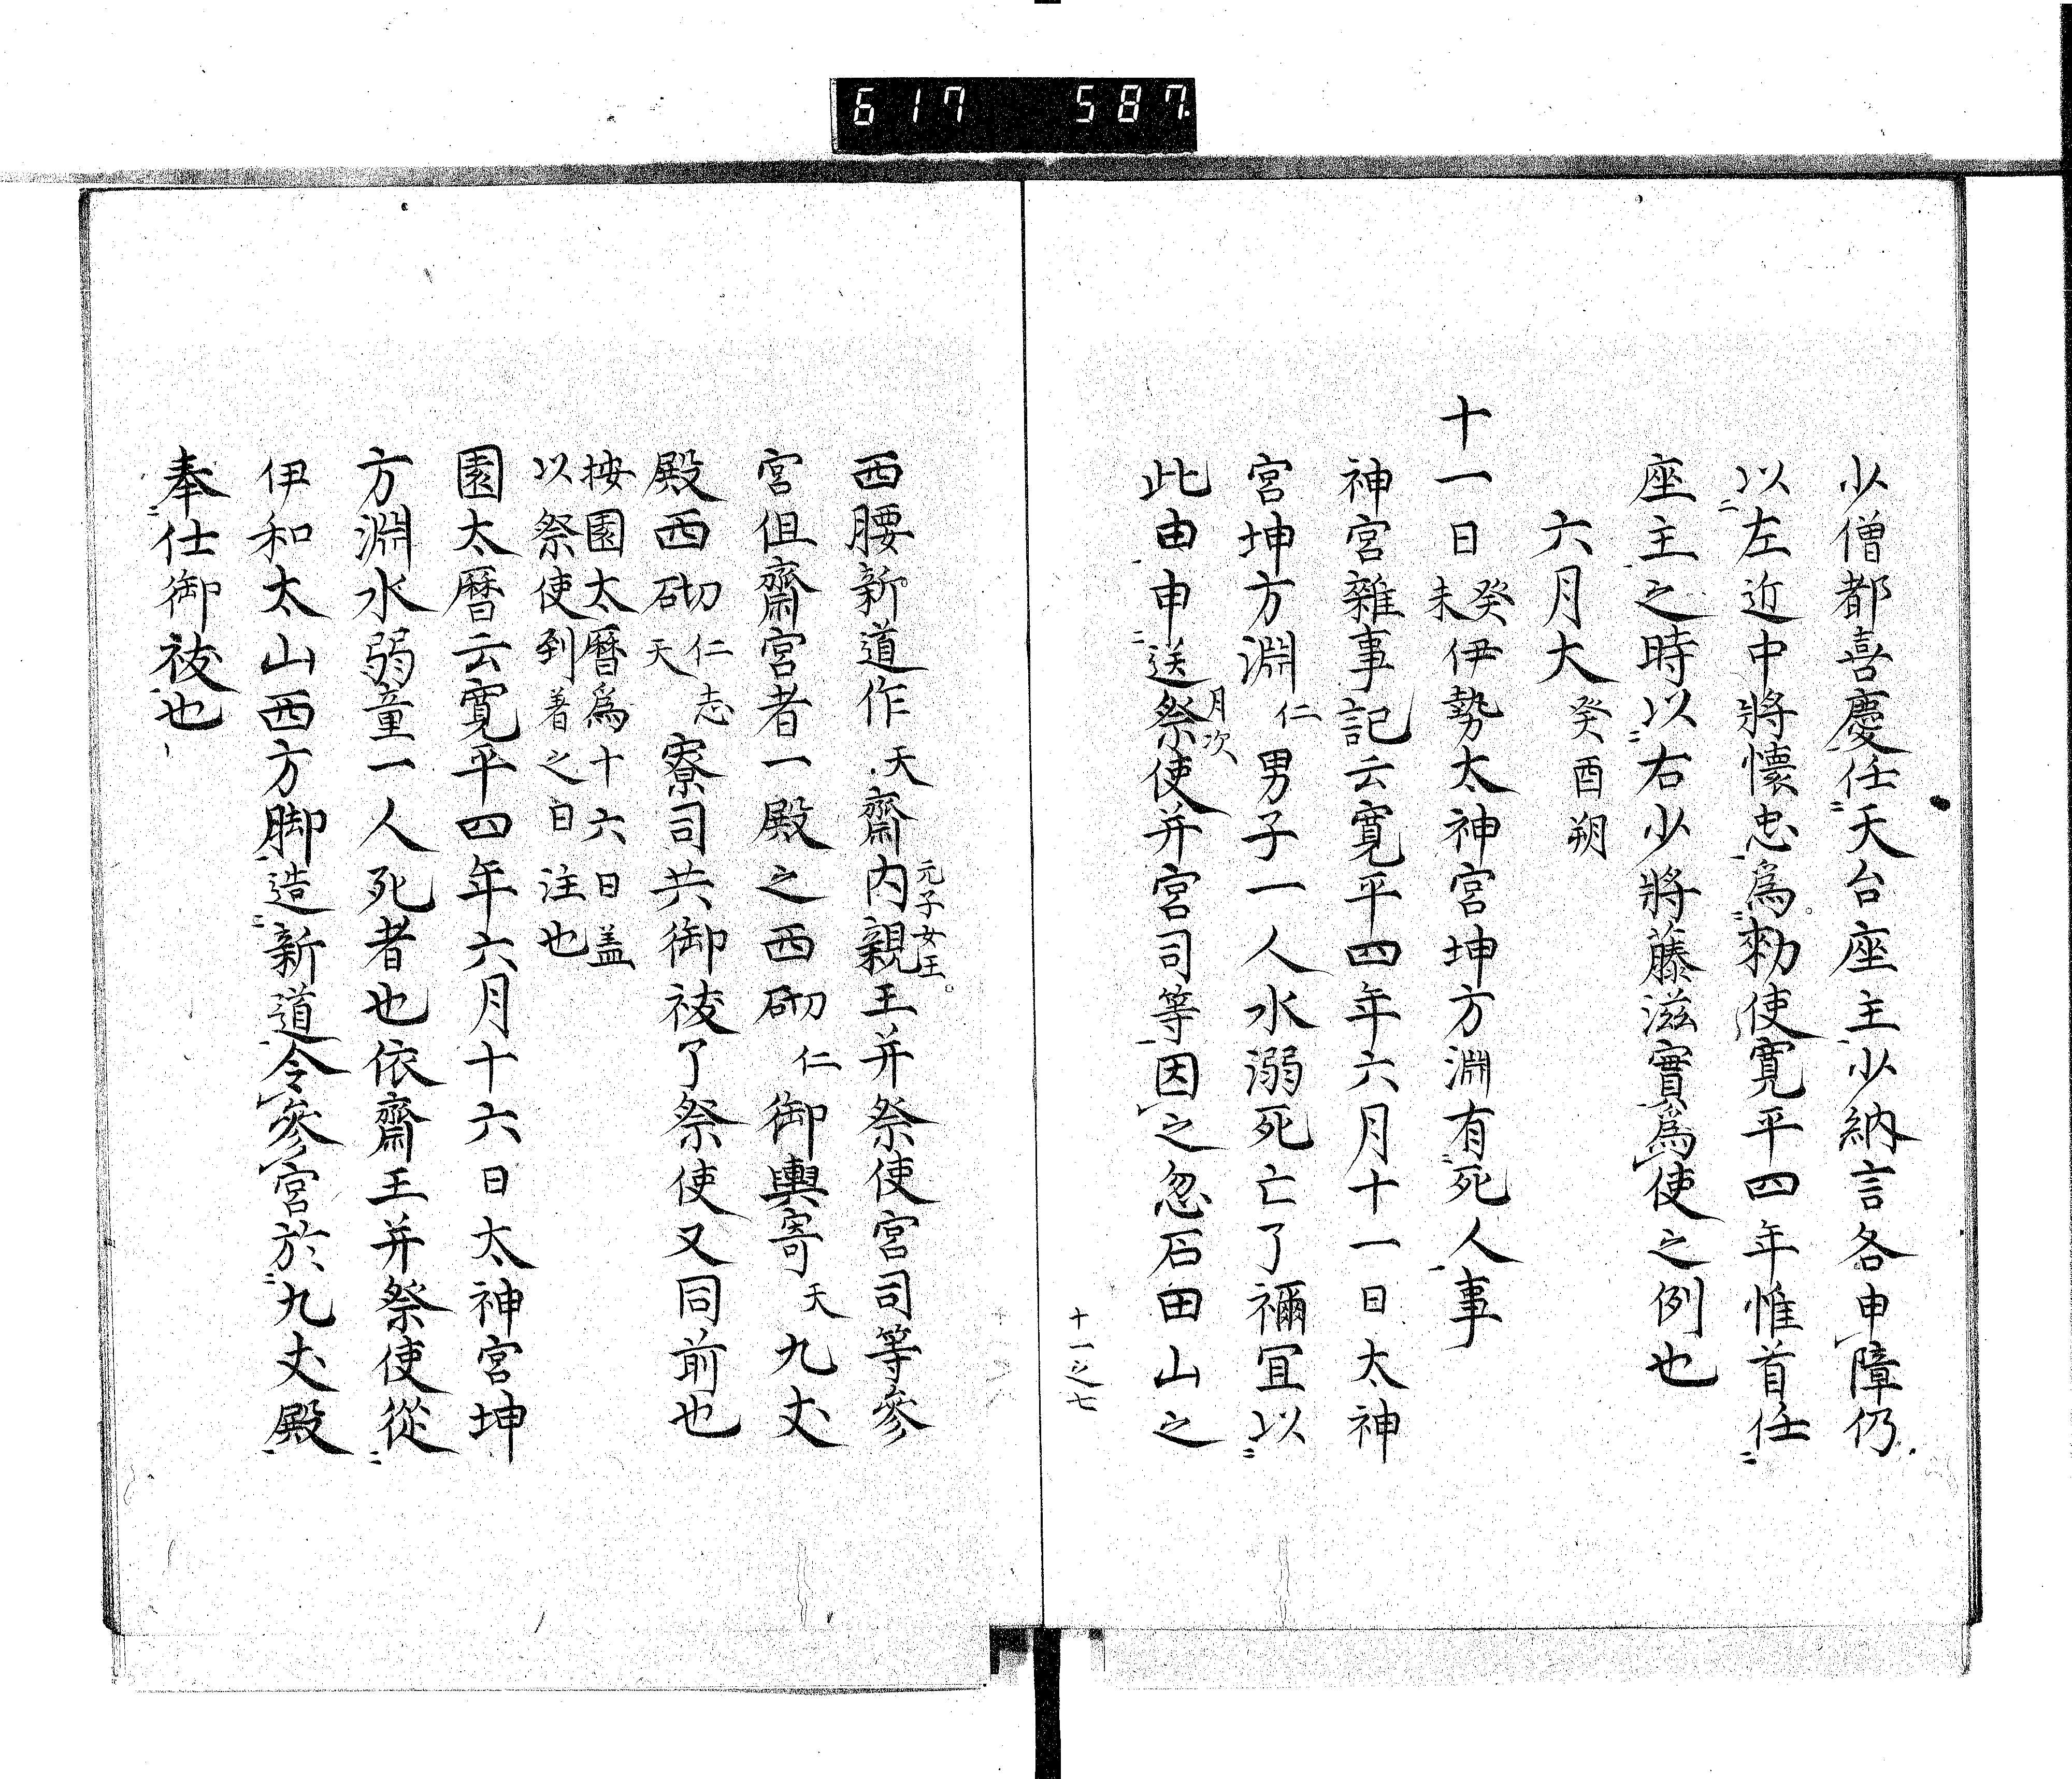 617 587
少僧都喜慶任天台座主少納言各申障仍
以左近中將懷忠爲勅使寛平四年惟首任
座主之時以右少將藤滋實爲使之例也
六月大癸酉朔
十一日癸未伊勢太神宮坤方淵有死人事
神宮雜事記云寛平四年六月十一日太神
宮坤方淵仁男子一人水溺死亡了禰宜以
此由申送月次祭使并宮司等因之忽石田山之
十一之七
西腰新道作天齋内親王元子女王并祭使宮司等參
宮但齋宮者一殿之西砌仁御輿寄天九丈
殿西砌仁志天寮司共御祓了祭使又同前也
按園太暦爲十六日盖
以祭使到着之日注也
園太暦云寛平四年六月十六日太神宮坤
方淵水弱童一人死者也依齋王并祭使從
伊和太山西方脚造新道令參宮於九丈殿
奉仕御祓也